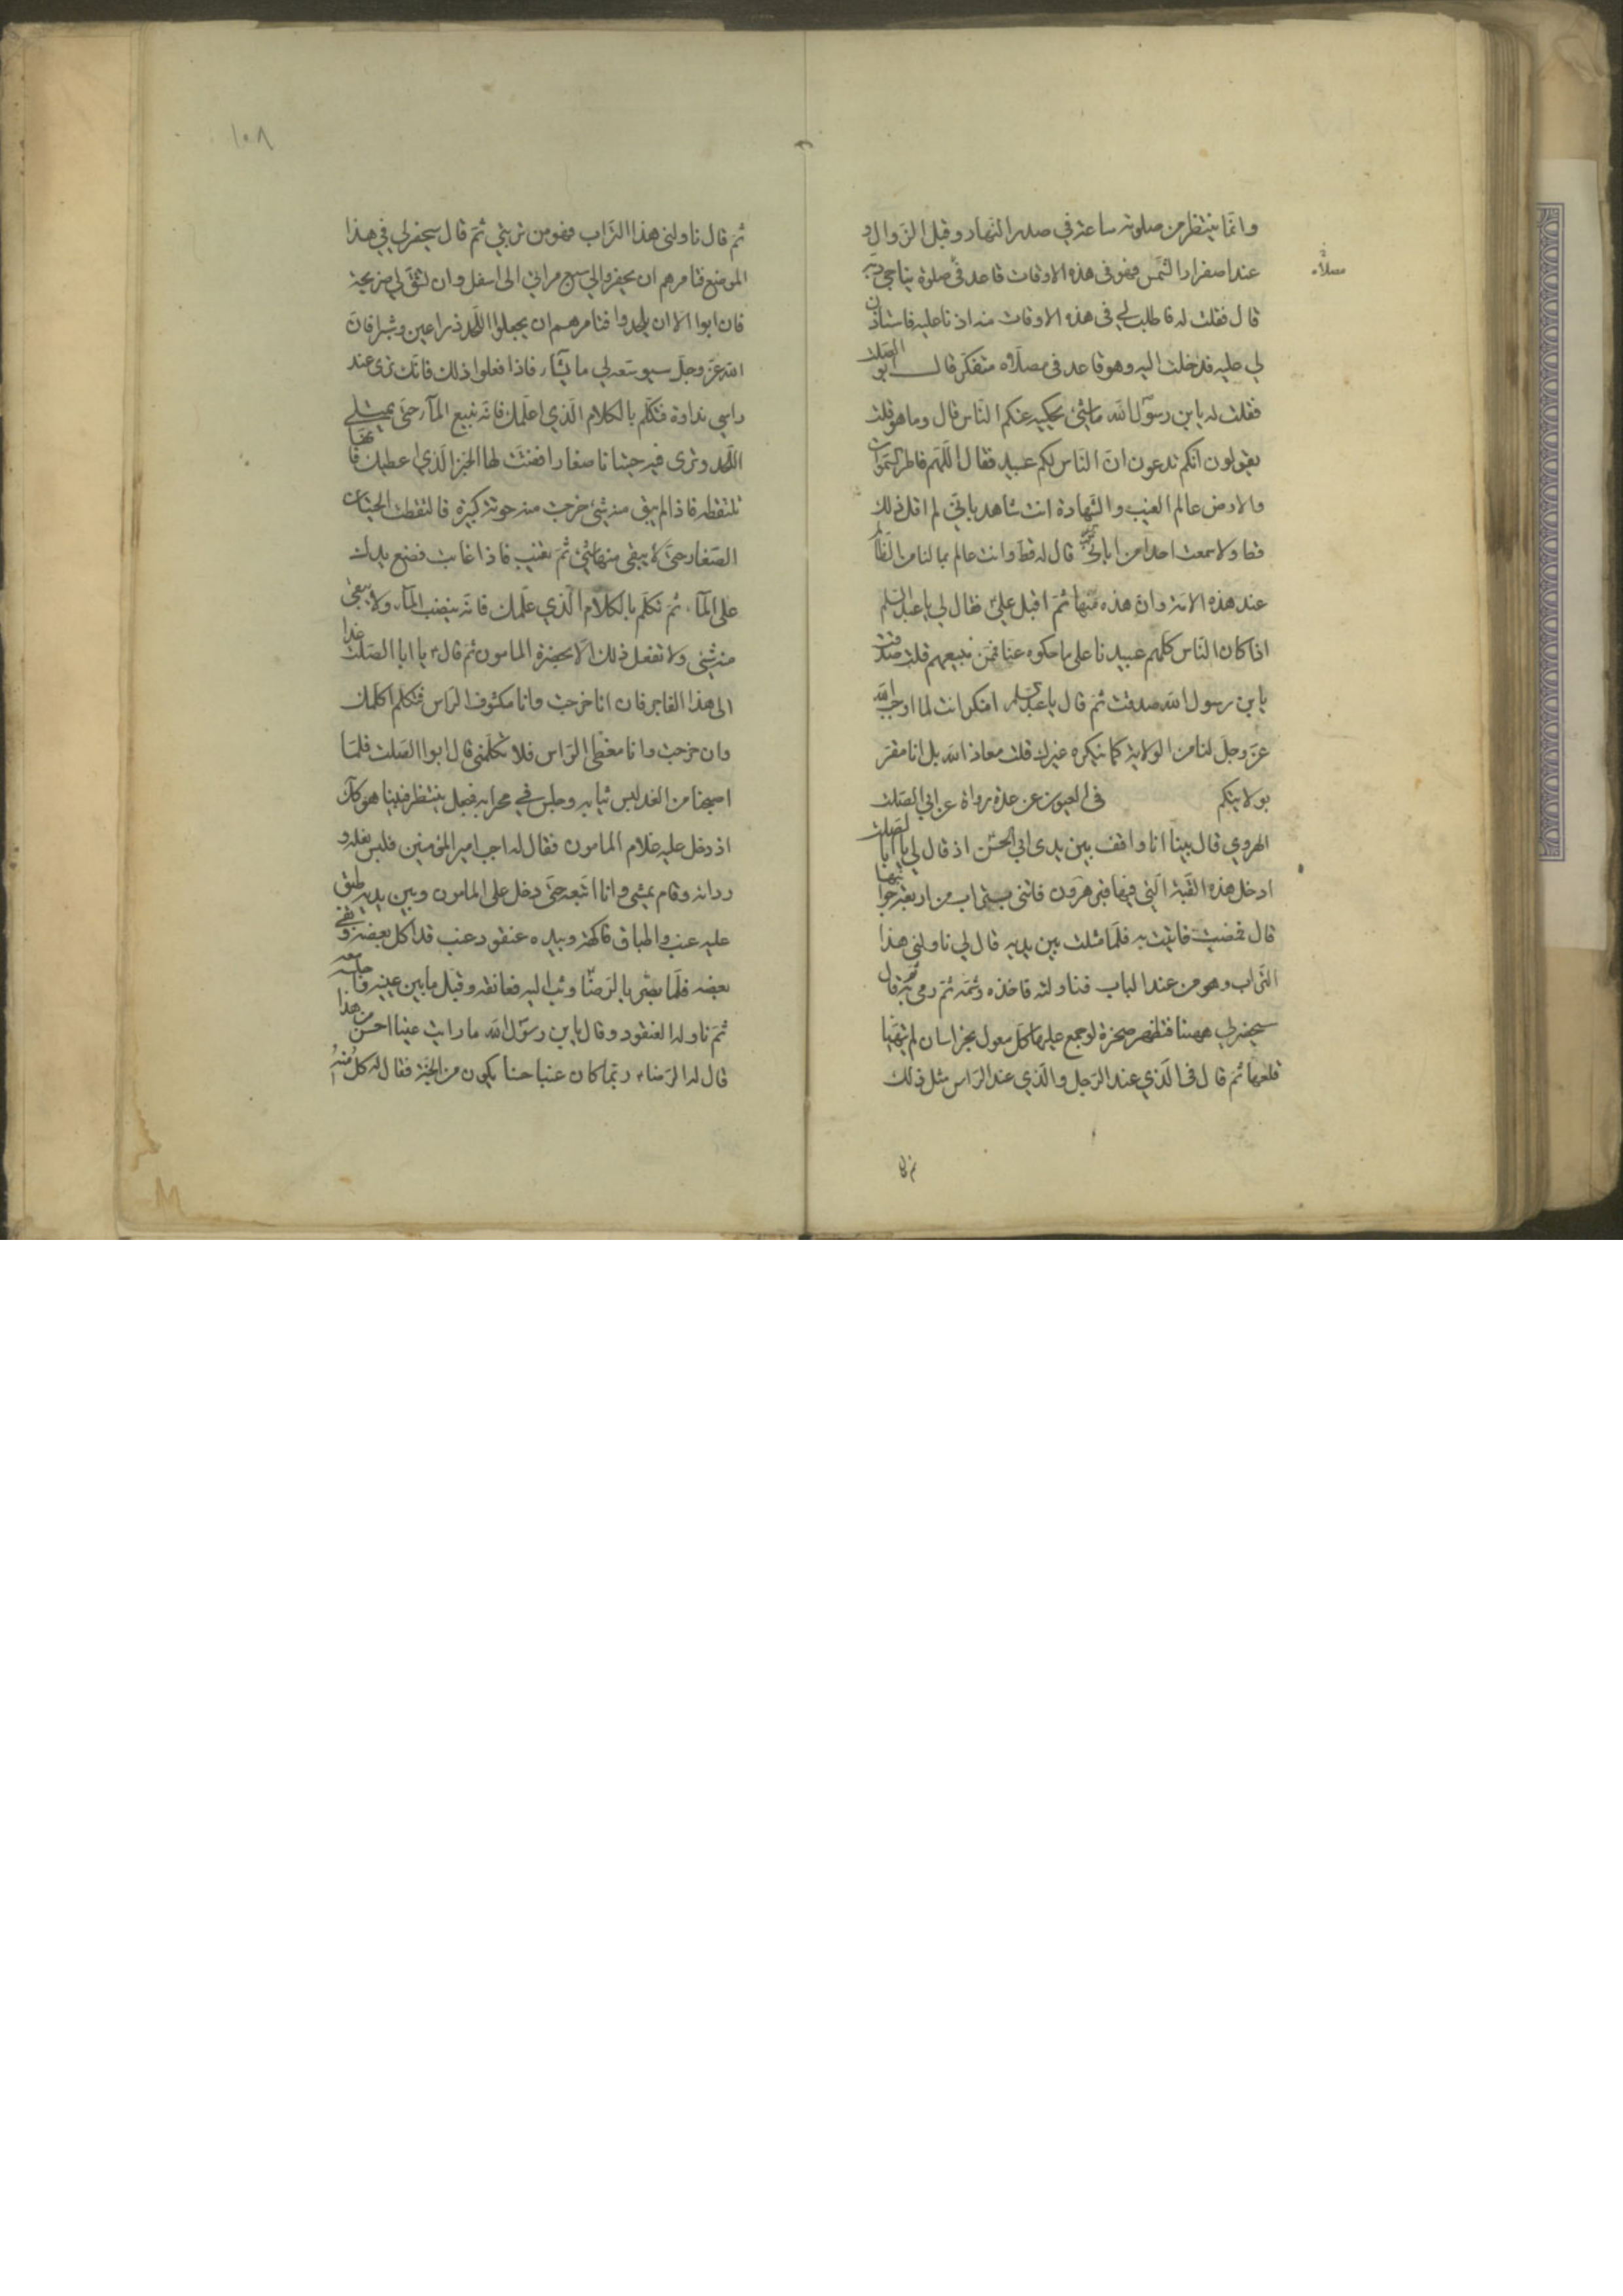 وانّما ينتظر من صلوته ساعة في صدر النهار وقبل الزوال و
عند اصفرار الشمس فهو فى هذه الاوقات قاعد فى صلوة يناجى ربه
مصلّاه
قال فقلت له فاطلب لي فى هذه الاوقات منه اذنا عليه فاستاذن
لي عليه فدخلت اليه وهو قاعد فى مصلّاه متفكّر قال ابو الصلت
فقلت له يابن رسول الله ما شئ يحكيه عنكم الناس قال وما هو قلت
يقولون انكم تدعون انّ الناس لكم عبيد فقال اللّهم فاطر السموات
والارض عالم الغيب والشهادة انت شاهد بانّي لم اقل ذلك
قط ولا سمعت احدا من ابائى قال له قط وانت عالم بما لنا من
عند هذه الامة وان هذه منها ثمّ اقبل علىّ فقال لي يا عبد السلم
اذا كان الناس كلهم عبيدنا على ما حكوه عنا فممّن نبيعهم قلت صدقت
يابن رسول الله صدقت ثمّ قال يا عبد السلم امنكر انت لما اوجب الله
عزّ وجلّ لنا من الولاية كما ينكره غيرك قلت معاذ الله بل انا مقرّ
بولايتكم في العيون عن عدة رواة عن ابي الصلت
الهروي قال بينا انا واقف بين يدى ابي الحسن اذ قال لي يا ابا الصلت
ادخل هذه القبّة الّتي فيها قبر هرون فائتنى بتراب من اربعة جوانبها
قال فمضيت فاتيت به فلمّا مثلت بين يديه قال لي ناولنى هذا
التّراب وهو من عند الباب فناولته فاخذه وشمّه ثمّ رمى به ثم قال
سيحفر لي ههنا فتظهر صخرة لو جمع عليها كلّ معول بخراسان لم يتهيّأ
قلعها ثمّ قال فى الّذي عند الرّجل والّذي عند الرّاس مثل ذلك
ثم قا
١٠٨
ثمّ قال ناولنى هذا التّراب فهو من تربتي ثمّ قال سيحفر لي في هذا
الموضع فتامرهم ان يحفروا لي سبع مراقي الى اسفل وان تشقّ لي ضريحة
فان ابوا الا ان يلحدوا فتامرهم ان يجعلوا اللّحد ذراعين وشبرا فانّ
الله عزّ وجلّ سيوسّعه لي ما يشاء فاذا فعلوا ذلك فانّك ترى عند
راسي نداوة فتكلّم بالكلام الّذي اعلّمك فانّه ينبع المآء حتّى يمتلي
اللّحد وترى فيه حيتانا صغارا ففتّت لها الخبز الّذي اعطيك فانها
تلتقطه فاذا لم يبق منه شئ خرجت منه حوتة كبيرة فالتقطت الحيتان
الصّغار حتّى لا يبقى منها شئ ثمّ تغيب فاذا غابت فضع يدك
على المآء ثمّ تكلّم بالكلام الّذي علّمك فانّه ينضب المآء ولا يبقى
منه شئ ولا تفعل ذلك الّا بحضرة المامون ثمّ قال يا ابا الصّلت غدا
الى هذا الفاجر فان انا خرجت وانا مكشوف الرّاس فتكلّم اكلّمك
وان خرجت وانا مغطى الرّاس فلا تكلّمنى قال ابوا الصّلت فلمّا
اصبحنا من الغد لبس ثيابه وجلس في محرابه فجعل ينتظر فبينا هو كذلك
اذ دخل عليه غلام المامون فقال له اجب امير المؤمنين فلبس نعله و
ردائه وقام يمشي وانا اتّبعه حتّى دخل على المامون وبين يديه طبق
عليه عنب واطباق فاكهة وبيده عنقود عنب قد اكل بعضه وبقي
بعضه فلمّا بصر بالرّضا وثب اليه فعانقه وقبّل ما بين عينيه واجلسه معه
ثمّ ناوله العنقود وقال يابن رسول الله ما رايت عنبا احسن من هذا
قال له الرّضا ربّما كان عنبا حسنا يكون من الجنّة فقال له كل منه